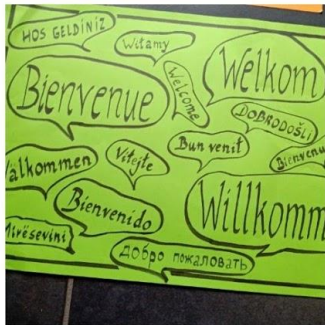 HOS GELDİNİZ
Witamy
Welkom
Bienvenue
Welcome
DOBRODOŠLI
Bun venit
Bienvenu
Välkommen
Vítejte
Bienvenido
Willkomm
Mirësevini
Добро пожаловать